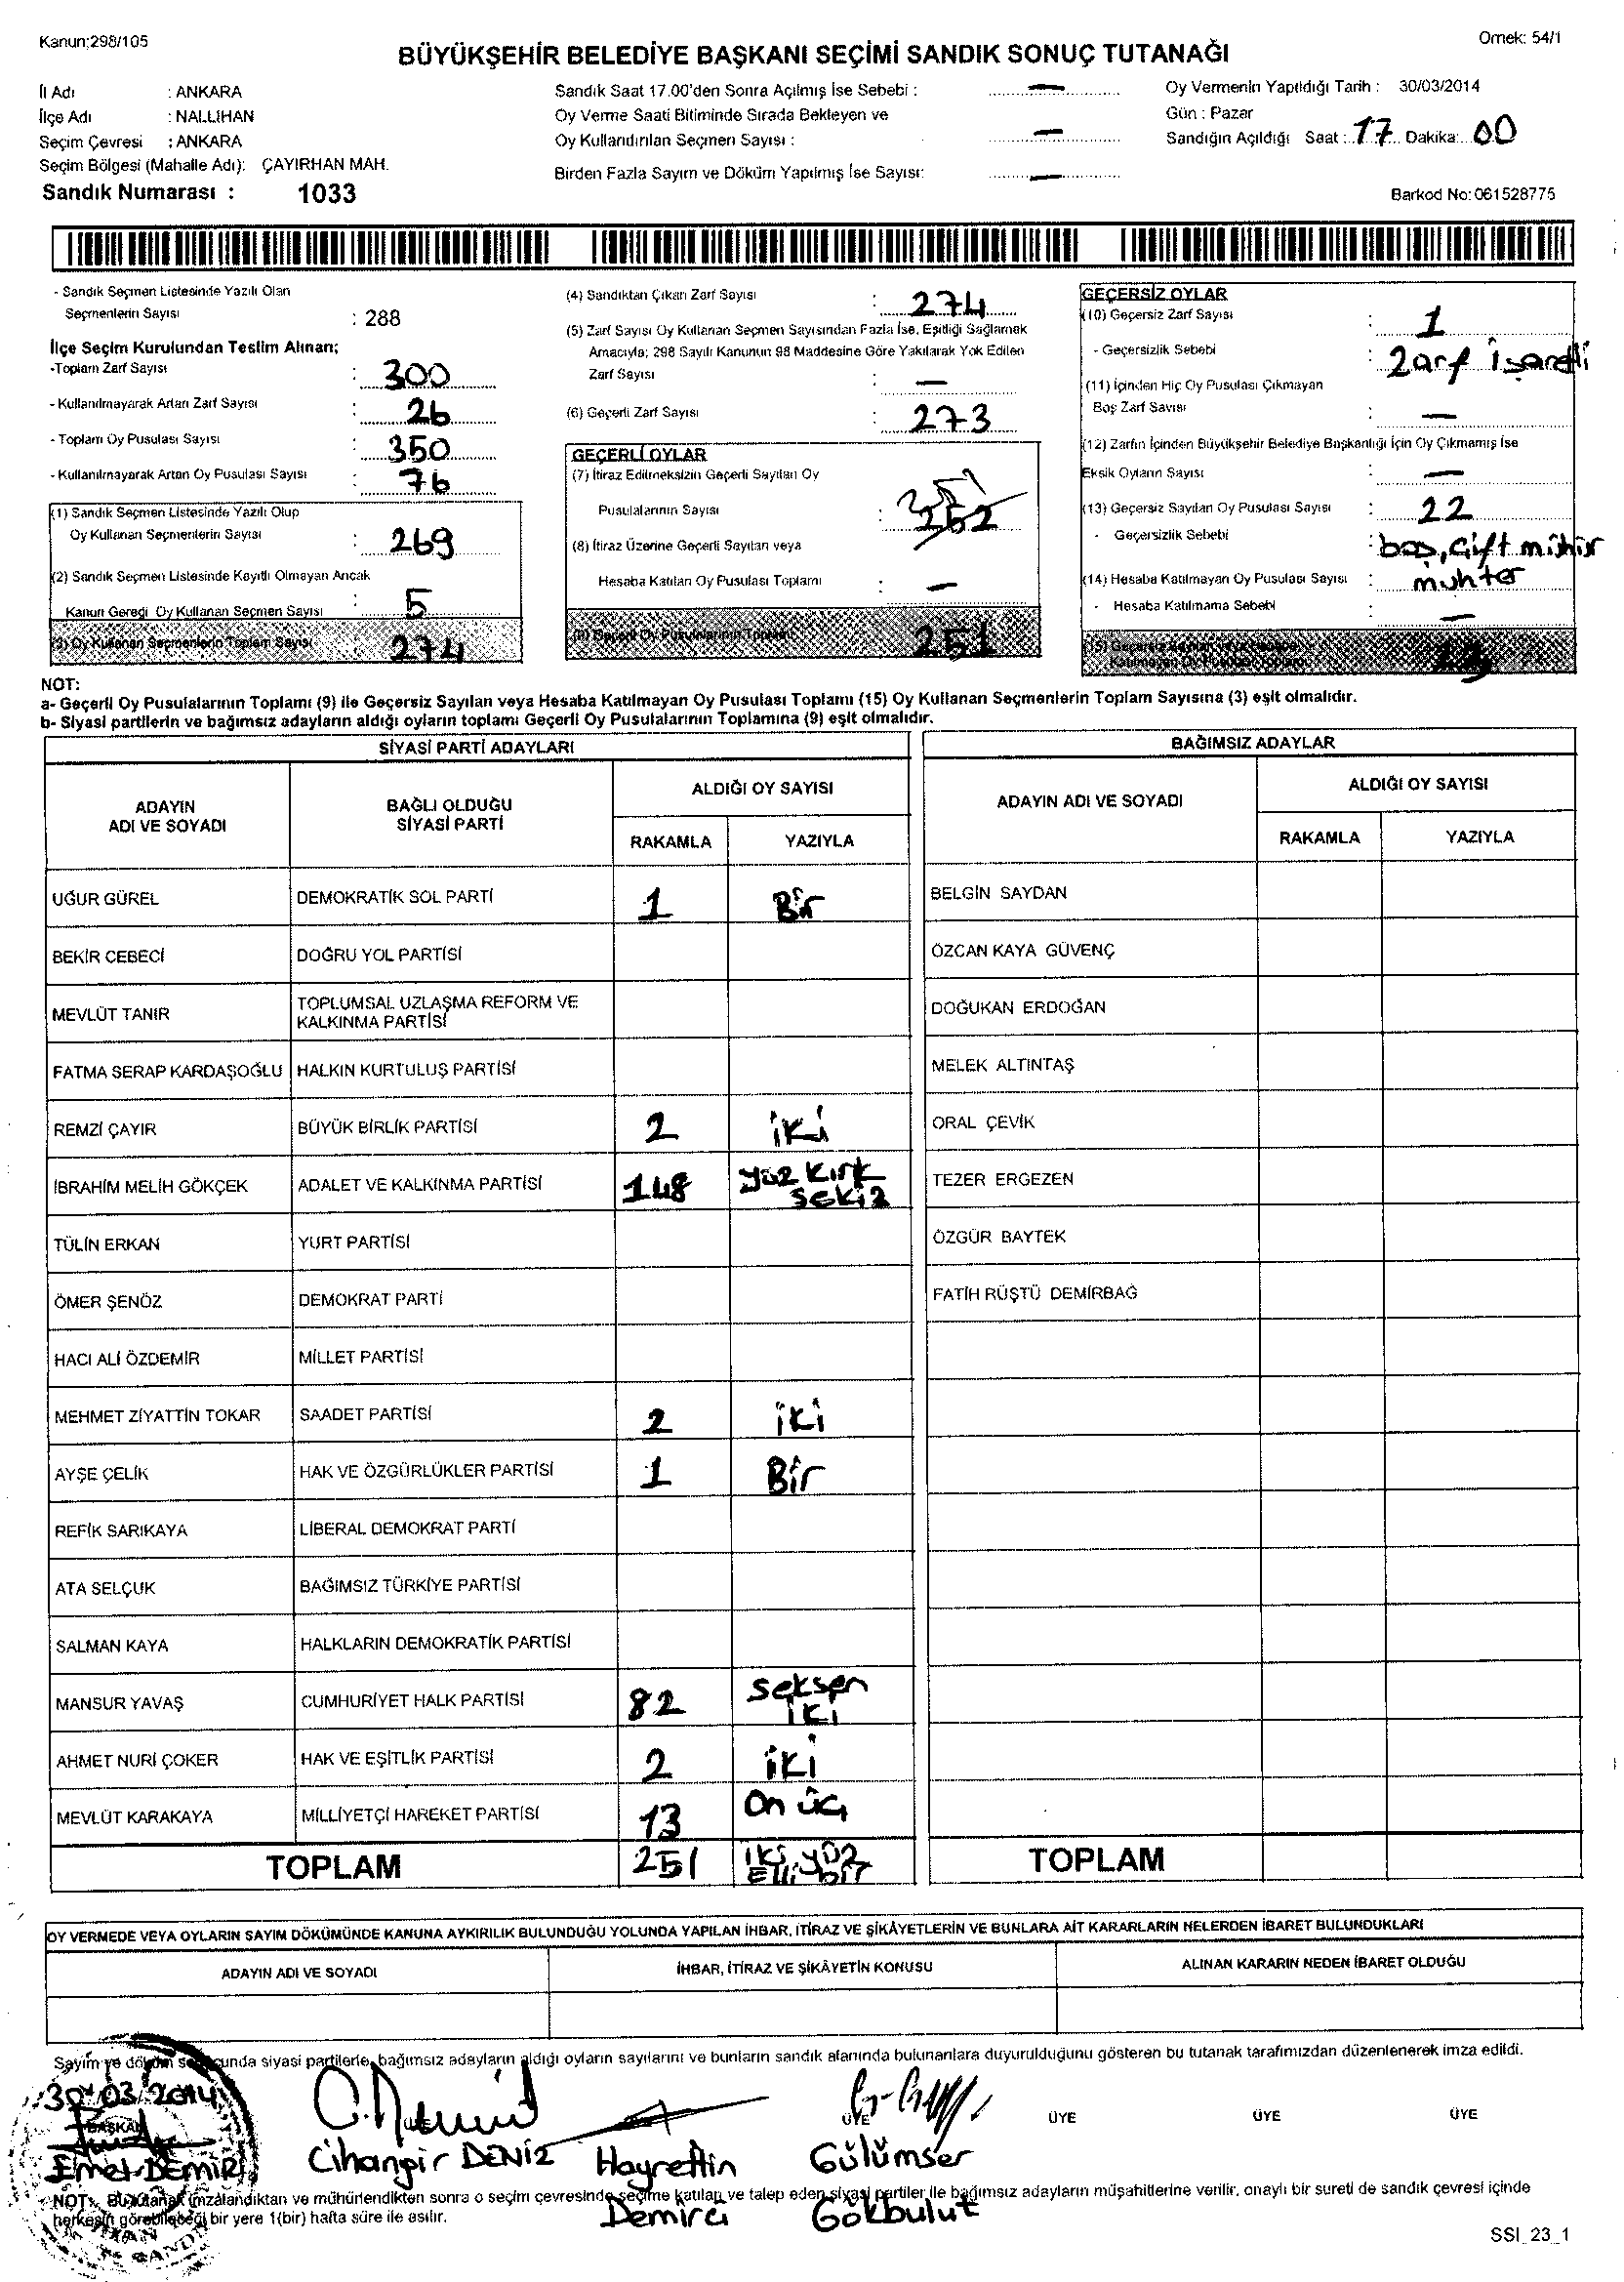 Kanun:298/105
Ornek: 54/1
BÜYÜKŞEHİR BELEDİYE BAŞKANI SEÇİMİ SANDIK SONUÇ TUTANAĞI
İl Adı : ANKARA
İlçe Adı : NALLIHAN
Seçim Çevresi : ANKARA
Seçim Bölgesi (Mahalle Adı): ÇAYIRHAN MAH.
Sandık Numarası : 1033
Sandık Saat 17.00'den Sonra Açılmış İse Sebebi : —
Oy Verme Saati Bitiminde Sırada Bekleyen ve
Oy Kullandırılan Seçmen Sayısı : —
Birden Fazla Sayım ve Döküm Yapılmış İse Sayısı: —
Oy Vermenin Yapıldığı Tarih : 30/03/2014
Gün : Pazar
Sandığın Açıldığı Saat : 17 Dakika: 00
Barkod No: 061528775
- Sandık Seçmen Listesinde Yazılı Olan
Seçmenlerin Sayısı : 288
İlçe Seçim Kurulundan Teslim Alınan;
-Toplam Zarf Sayısı : 300
- Kullanılmayarak Artan Zarf Sayısı : 26
- Toplam Oy Pusulası Sayısı : 350
- Kullanılmayarak Artan Oy Pusulası Sayısı : 76
(1) Sandık Seçmen Listesinde Yazılı Olup
Oy Kullanan Seçmenlerin Sayısı : 269
(2) Sandık Seçmen Listesinde Kayıtlı Olmayan Ancak
Kanun Gereği Oy Kullanan Seçmen Sayısı : 5
(3) Oy Kullanan Seçmenlerin Toplam Sayısı : 274
(4) Sandıktan Çıkan Zarf Sayısı : 274
(5) Zarf Sayısı Oy Kullanan Seçmen Sayısından Fazla İse, Eşitliği Sağlamak
Amacıyla; 298 Sayılı Kanunun 98 Maddesine Göre Yakılarak Yok Edilen
Zarf Sayısı : —
(6) Geçerli Zarf Sayısı : 273
GEÇERLİ OYLAR
(7) İtiraz Edilmeksizin Geçerli Sayılan Oy
Pusulalarının Sayısı :
(8) İtiraz Üzerine Geçerli Sayılan veya
Hesaba Katılan Oy Pusulası Toplamı : —
(9) Geçerli Oy Pusulalarının Toplamı 251
GEÇERSİZ OYLAR
(10) Geçersiz Zarf Sayısı : 1
- Geçersizlik Sebebi : Zarf işaretli
(11) İçinden Hiç Oy Pusulası Çıkmayan
Boş Zarf Sayısı : —
(12) Zarfın İçinden Büyükşehir Belediye Başkanlığı İçin Oy Çıkmamış İse
Eksik Oyların Sayısı : —
(13) Geçersiz Sayılan Oy Pusulası Sayısı : 22
- Geçersizlik Sebebi : boş, çift mühür
muhtar
(14) Hesaba Katılmayan Oy Pusulası Sayısı :
- Hesaba Katılmama Sebebi : —
(15) Geçersiz Sayılan veya Hesaba
Katılmayan Oy Pusulası Toplamı 23
NOT:
a- Geçerli Oy Pusulalarının Toplamı (9) ile Geçersiz Sayılan veya Hesaba Katılmayan Oy Pusulası Toplamı (15) Oy Kullanan Seçmenlerin Toplam Sayısına (3) eşit olmalıdır.
b- Siyasi partilerin ve bağımsız adayların aldığı oyların toplamı Geçerli Oy Pusulalarının Toplamına (9) eşit olmalıdır.
SİYASİ PARTİ ADAYLARI
ADAYIN ADI VE SOYADI BAĞLI OLDUĞU SİYASİ PARTİ ALDIĞI OY SAYISI
RAKAMLA YAZIYLA
UĞUR GÜREL DEMOKRATİK SOL PARTİ 1 Bir
BEKİR CEBECİ DOĞRU YOL PARTİSİ
MEVLÜT TANIR TOPLUMSAL UZLAŞMA REFORM VE KALKINMA PARTİSİ
FATMA SERAP KARDAŞOĞLU HALKIN KURTULUŞ PARTİSİ
REMZİ ÇAYIR BÜYÜK BİRLİK PARTİSİ 2 iki
İBRAHİM MELİH GÖKÇEK ADALET VE KALKINMA PARTİSİ 148 yüz kırk sekiz
TÜLİN ERKAN YURT PARTİSİ
ÖMER ŞENÖZ DEMOKRAT PARTİ
HACI ALİ ÖZDEMİR MİLLET PARTİSİ
MEHMET ZİYATTİN TOKAR SAADET PARTİSİ 2 iki
AYŞE ÇELİK HAK VE ÖZGÜRLÜKLER PARTİSİ 1 Bir
REFİK SARIKAYA LİBERAL DEMOKRAT PARTİ
ATA SELÇUK BAĞIMSIZ TÜRKİYE PARTİSİ
SALMAN KAYA HALKLARIN DEMOKRATİK PARTİSİ
MANSUR YAVAŞ CUMHURİYET HALK PARTİSİ 82 seksen iki
AHMET NURİ ÇOKER HAK VE EŞİTLİK PARTİSİ 2 iki
MEVLÜT KARAKAYA MİLLİYETÇİ HAREKET PARTİSİ 13 On üç
TOPLAM 251 iki yüz Elli bir
BAĞIMSIZ ADAYLAR
ADAYIN ADI VE SOYADI ALDIĞI OY SAYISI
RAKAMLA YAZIYLA
BELGİN SAYDAN
ÖZCAN KAYA GÜVENÇ
DOĞUKAN ERDOĞAN
MELEK ALTINTAŞ
ORAL ÇEVİK
TEZER ERGEZEN
ÖZGÜR BAYTEK
FATİH RÜŞTÜ DEMİRBAĞ
TOPLAM
OY VERMEDE VEYA OYLARIN SAYIM DÖKÜMÜNDE KANUNA AYKIRILIK BULUNDUĞU YOLUNDA YAPILAN İHBAR, İTİRAZ VE ŞİKÂYETLERİN VE BUNLARA AİT KARARLARIN NELERDEN İBARET BULUNDUKLARI
ADAYIN ADI VE SOYADI İHBAR, İTİRAZ VE ŞİKÂYETİN KONUSU ALINAN KARARIN NEDEN İBARET OLDUĞU
Sayım ve döküm sonucunda siyasi partilerle, bağımsız adayların aldığı oyların sayılarını ve bunların sandık alanında bulunanlara duyurulduğunu gösteren bu tutanak tarafımızdan düzenlenerek imza edildi.
30.03.2014
BAŞKAN ÜYE ÜYE ÜYE ÜYE
Emel DEMİR Cihangir DENİZ Hayrettin Demirci Gülümser Gökbulut
NOT: Bu tutanak imzalandıktan ve mühürlendikten sonra o seçim çevresinde seçime katılan ve talep eden siyasi partiler ile bağımsız adayların müşahitlerine verilir, onaylı bir sureti de sandık çevresi içinde
herkesin görebileceği bir yere 1(bir) hafta süre ile asılır.
SSI_23_1